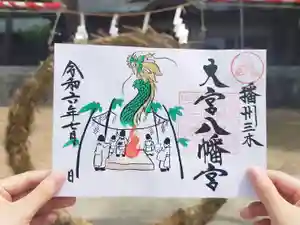 播州三木
大宮八幡宮
令和六年七月
日